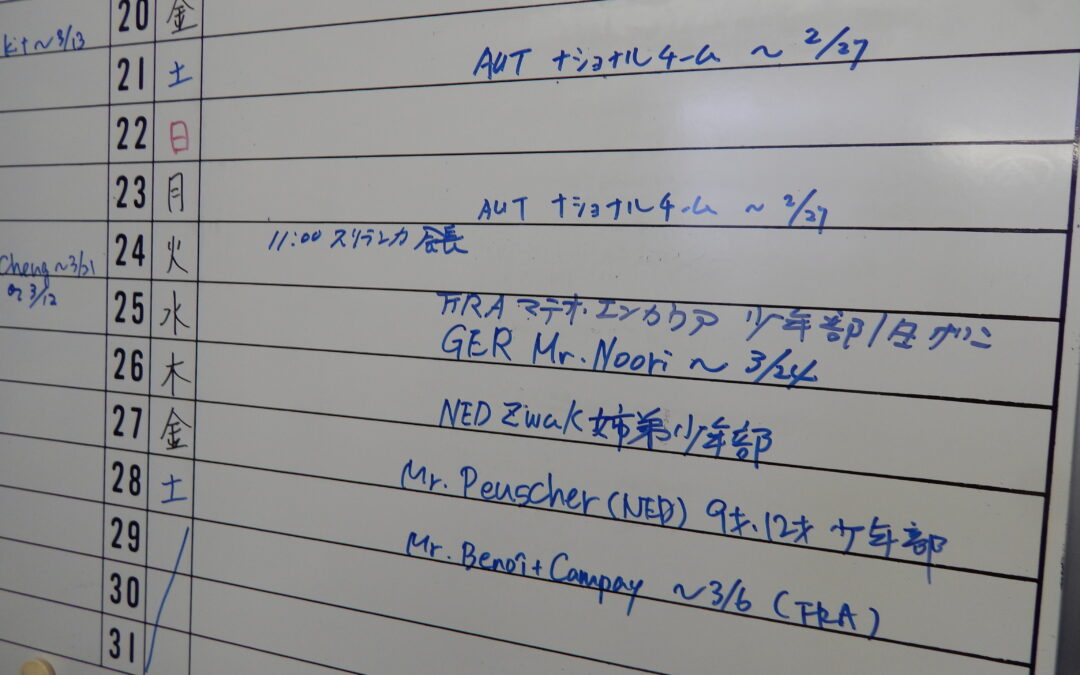 20 金
kit～3/13
21 土 AUT ナショナルチーム ～ 2/27
22 日
23 月 AUT ナショナルチーム ～ 2/27
24 火 11:00 スリランカ 会長
Cheng～3/21
or 3/12
25 水 FRA マテオ・エンカウア 少年部/
26 木 GER Mr. Noori ～ 3/24
27 金 NED Zwak 姉弟 少年部
28 土 Mr. Peuscher (NED) 9才、12才 少年部
29 Mr. Benoit Campay ～3/6 (FRA)
30
31